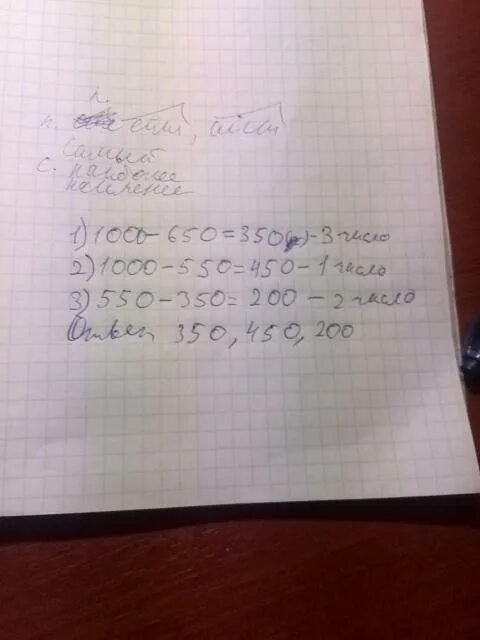 п.
п. ейш, айш
Самый
с. наиболее
наименее
1) 1000 - 650 = 350 - 3 число
2) 1000 - 550 = 450 - 1 число
3) 550 - 350 = 200 - 2 число
Ответ 350, 450, 200